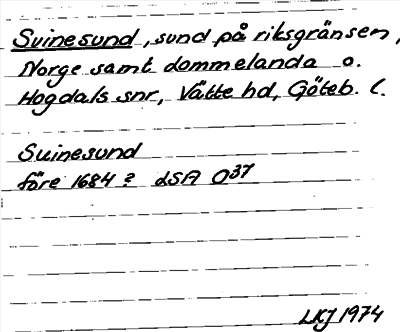 Svinesund, sund på riksgränsen,
Norge samt dommelanda o.
Hogdals snr, Vätte hd, Göteb. l.
Suinesund
före 1684? LSA O37
LKJ 1974